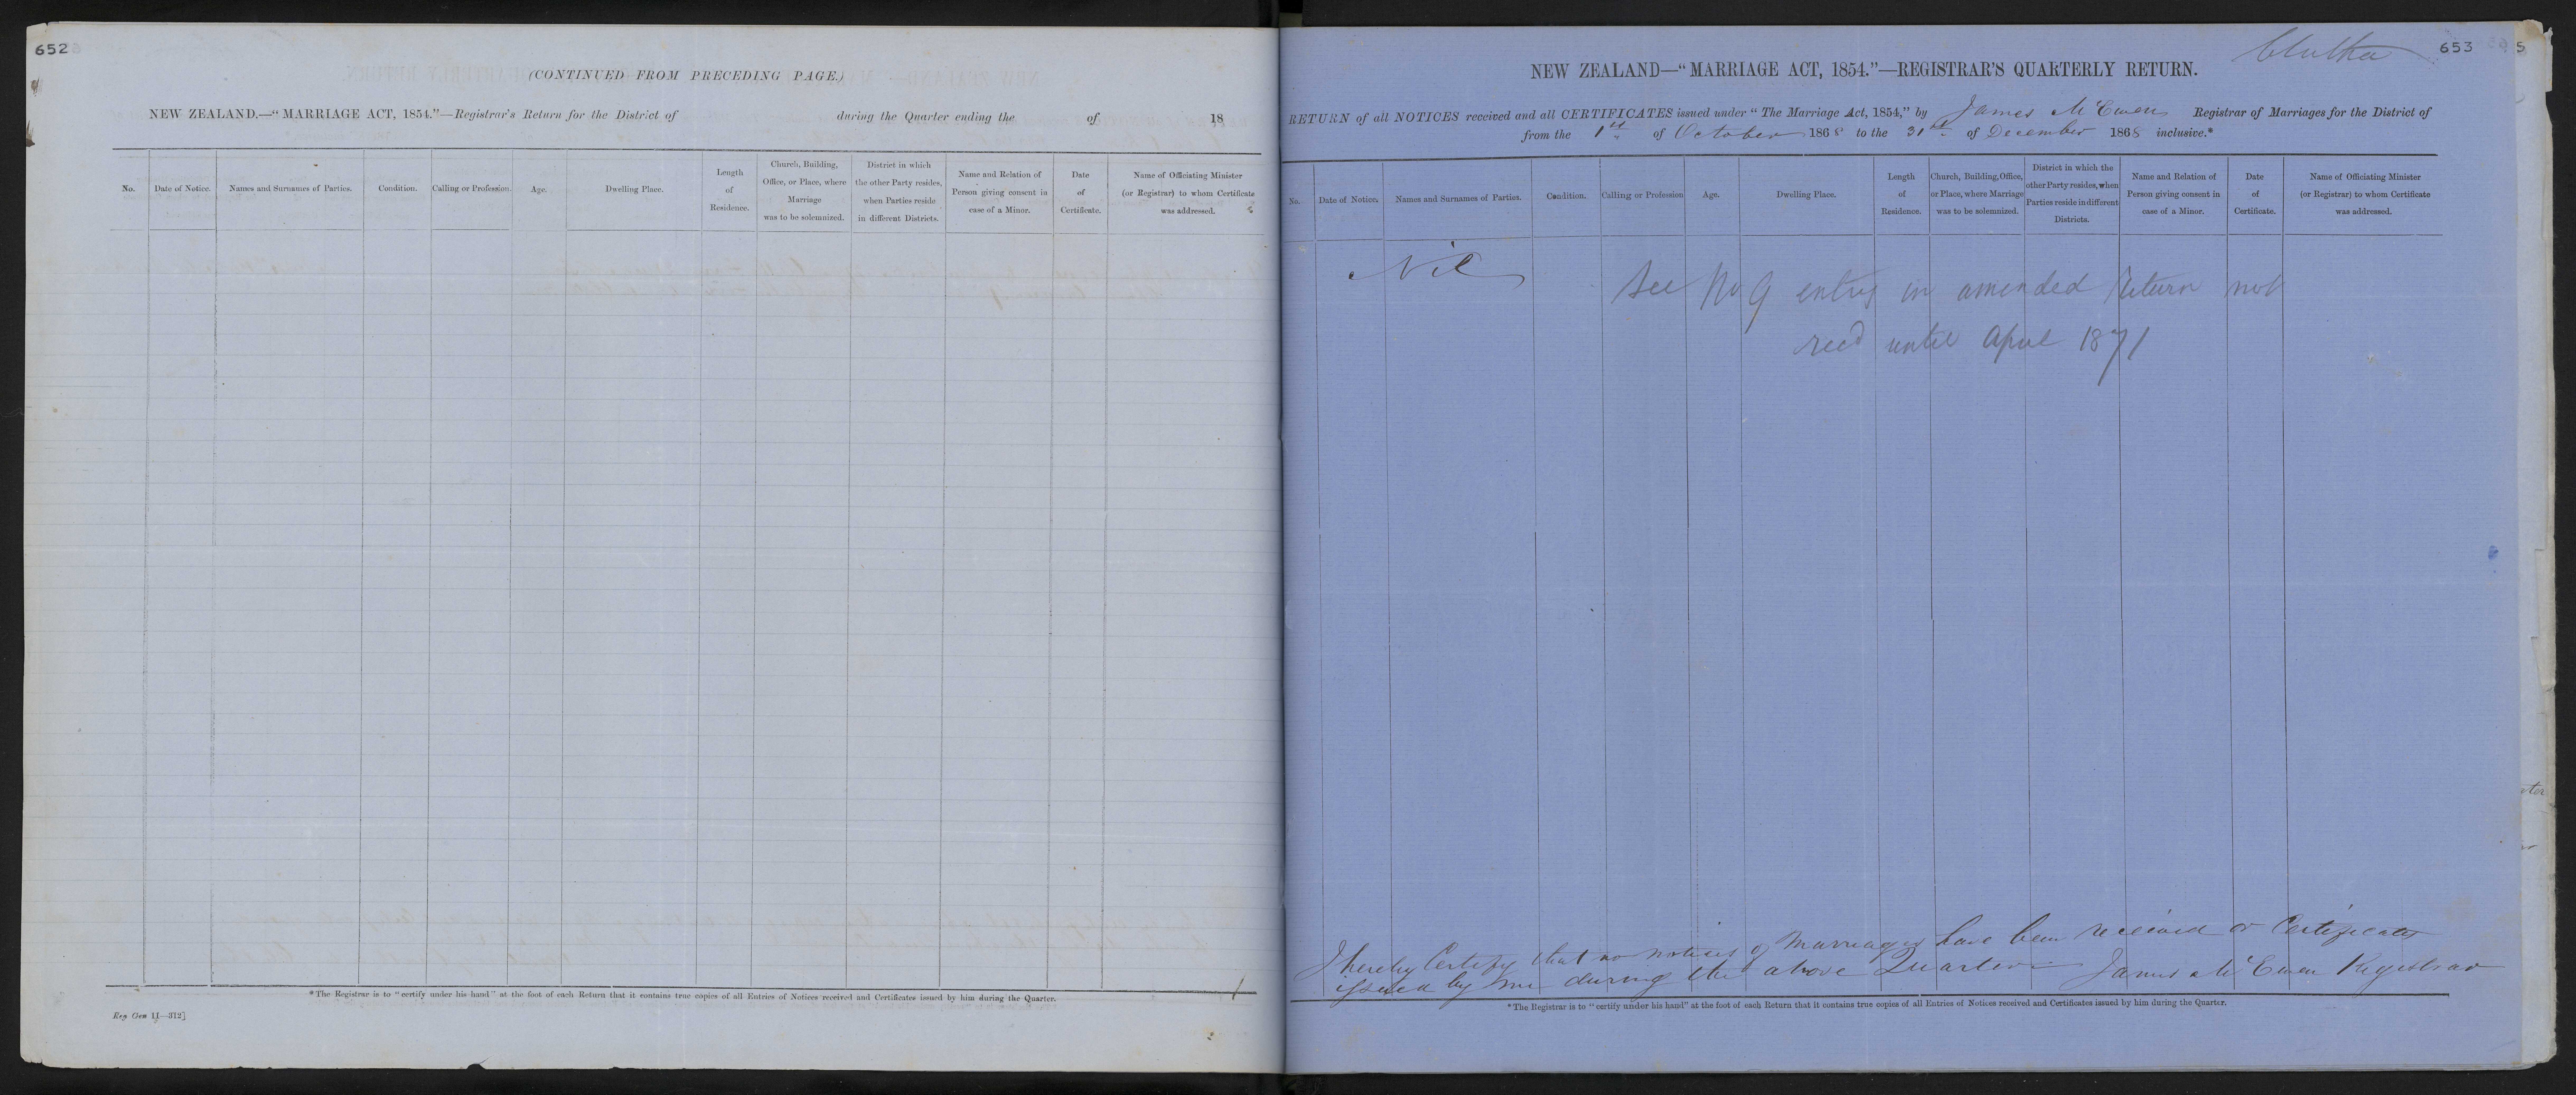 652
(CONTINUED FROM PRECEDING PAGE.)
NEW ZEALAND.—“MARRIAGE ACT, 1854.”—Registrar's Return for the District of during the Quarter ending the of 18
No.
Date of Notice.
Names and Surnames of Parties.
Condition.
Calling or Profession.
Age.
Dwelling Place.
Length
of
Residence.
Church, Building,
Office, or Place, where
Marriage
was to be solemnized.
District in which
the other Party resides,
when Parties reside
in different Districts.
Name and Relation of
Person giving consent in
case of a Minor.
Date
of
Certificate.
Name of Officiating Minister
(or Registrar) to whom Certificate
was addressed.
*The Registrar is to “certify under his hand” at the foot of each Return that it contains true copies of all Entries of Notices received and Certificates issued by him during the Quarter.
Reg Gen 11—312]
653
Clutha
NEW ZEALAND—“MARRIAGE ACT, 1854.”—REGISTRAR'S QUARTERLY RETURN.
RETURN of all NOTICES received and all CERTIFICATES issued under “The Marriage Act, 1854,” by James McEwen Registrar of Marriages for the District of
from the 1st of October 1868 to the 31st of December 1868 inclusive.*
No.
Date of Notice.
Names and Surnames of Parties.
Condition.
Calling or Profession
Age.
Dwelling Place.
Length
of
Residence.
Church, Building, Office,
or Place, where Marriage
was to be solemnized.
District in which the
other Party resides, when
Parties reside in different
Districts.
Name and Relation of
Person giving consent in
case of a Minor.
Date
of
Certificate.
Name of Officiating Minister
(or Registrar) to whom Certificate
was addressed.
Nil
See No 9 entry in amended return not
recd until April 1871
I hereby Certify that no notices of Marriages have been received or Certificates
issued by me during the above Quarter James McEwen Registrar
*The Registrar is to “certify under his hand” at the foot of each Return that it contains true copies of all Entries of Notices received and Certificates issued by him during the Quarter.